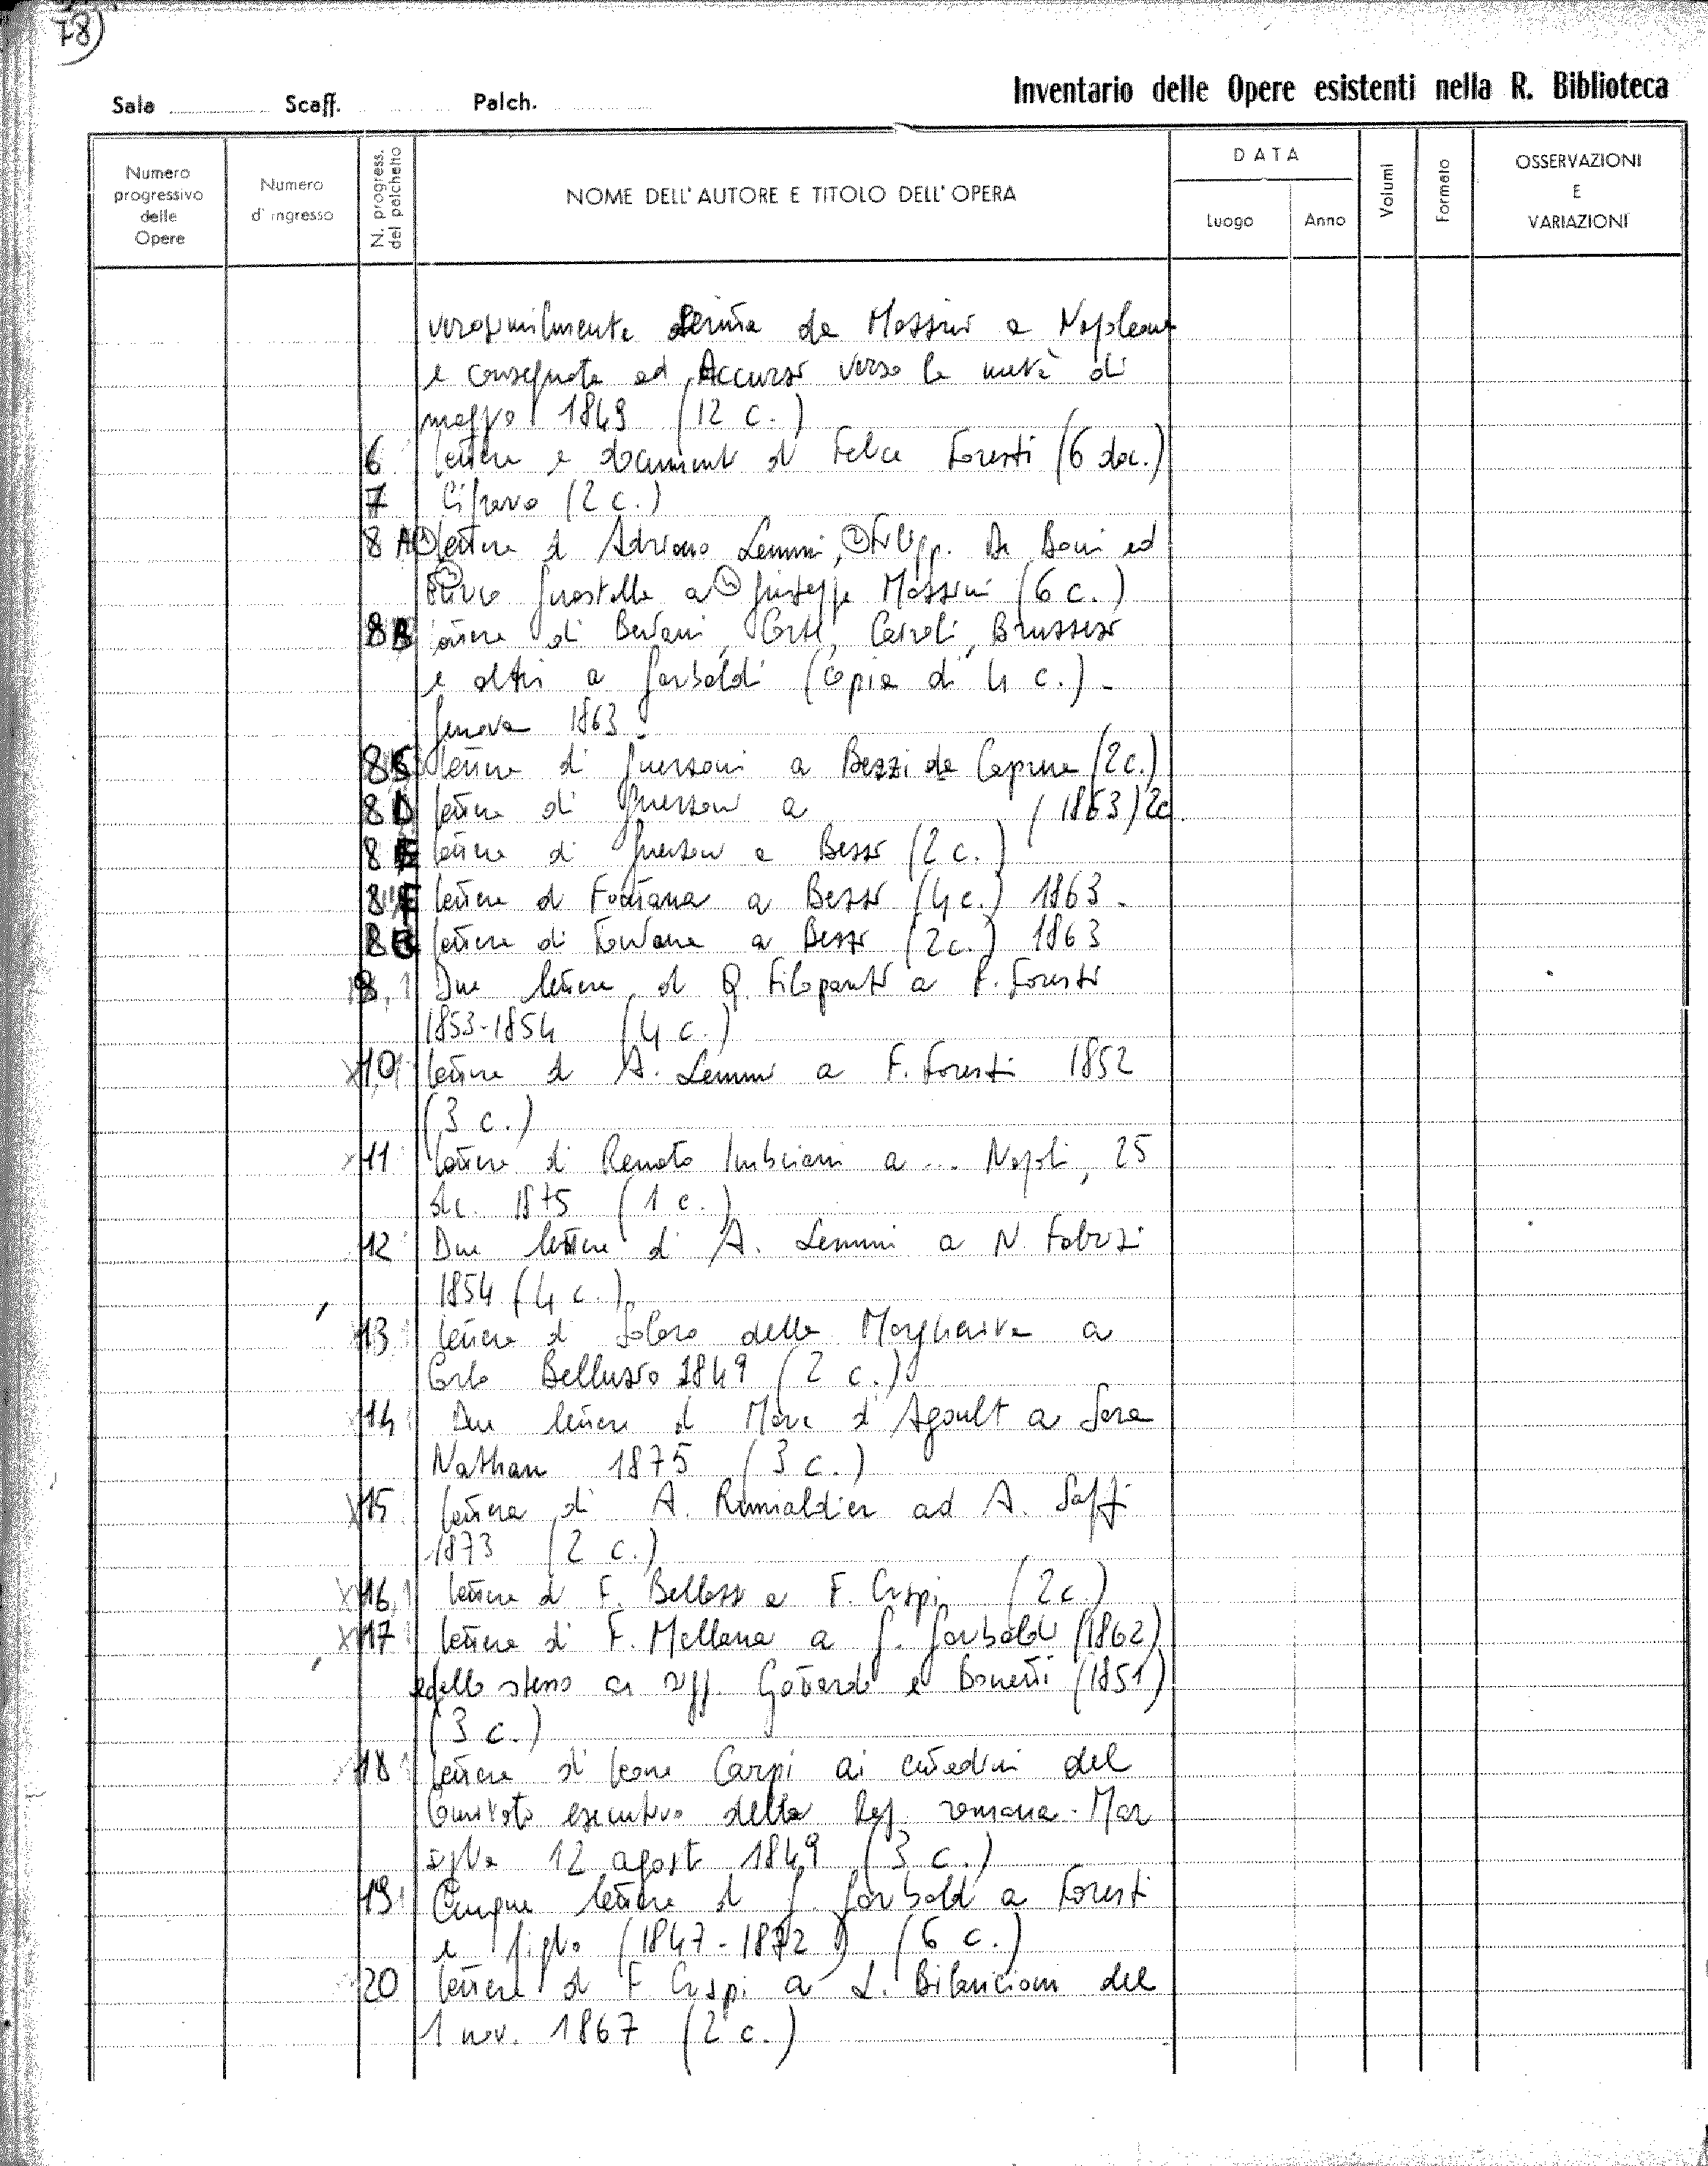 78)
Inventario delle Opere esistenti nella R. Biblioteca
Sala Scaff. Palch.
Numero progressivo delle Opere
Numero d'ingresso
N. progress. del palchetto
NOME DELL'AUTORE E TITOLO DELL'OPERA
DATA
Luogo
Anno
Volumi
Formato
OSSERVAZIONI E VARIAZIONI
verosimilmente da Mazzini a Napoleone
e consegnata ad Accursi verso la metà di
1849 (12 c.)
6 lettere e documenti di Felice Foresti (6 doc.)
7 Cifrario (2 c.)
8 A ① lettere di Adriano Lemmi, ② Filipp. De Boni ed
Guastalla a Giuseppe Mazzini (6 c.)
8B lettera di Bertani, Corte, Cairoli, Brussesi
e altri a Garibaldi (copia di 4 c.) -
Genova 1863
8C lettera di Guerzoni a Bezzi da Caprera (2 c.)
8D lettera di Guerzoni a (1863) 2c.
8E lettera di Guerzoni a Bezzi (2 c.)
8F lettera di Fontana a Bezzi (4 c.) 1863 -
8G lettera di Fontana a Bezzi (2 c.) 1863
9 Due lettere di Q. Filopanti a F. Foresti
1853-1854 (4 c.)
10 lettera di A. Lemmi a F. Foresti 1852
(3 c.)
11 lettera di Renato Imbriani a ... Napoli, 25
1875 (1 c.)
12 Due lettere di A. Lemmi a N. Fabrizi
1854 (4 c.)
13 lettera di Solaro della Margherita a
Carlo 1849 (2 c.)
14 Due lettere di Marie d'Agoult a Sara
Nathan 1875 (3 c.)
15 lettera di A. ad A. Saffi
1873 (2 c.)
16 lettera di F. Bellazzi a F. Crispi (2 c.)
17 lettera di F. Mellana a G. Garibaldi (1862)
e dello stesso a Gottardo e Bonetti (1851)
(3 c.)
18 lettera di Leone Carpi ai cittadini del
Comitato esecutivo della Rep. romana - Mar
siglia 12 agosto 1849 (3 c.)
19 Cinque lettere di G. Garibaldi a Foresti
e figlio (1847-1872) (6 c.)
20 lettera di F. Crispi a L. Bilancioni del
1 nov. 1867 (2 c.)